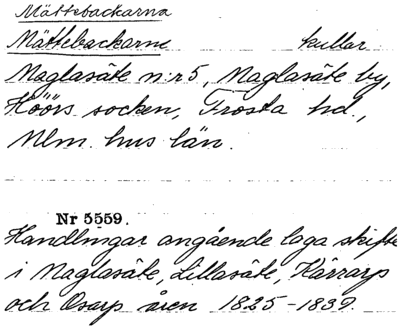 Mättebackarna
Mättebackarne kullar
Maglasäte nr 5, Maglasäte by,
Höörs socken, Frosta hd.,
Mlm. hus län.
Nr 5559.
Handlingar angående laga skifte
i Maglasäte, Lillasäte, Kärrarp
och Osarp åren 1825-1839.